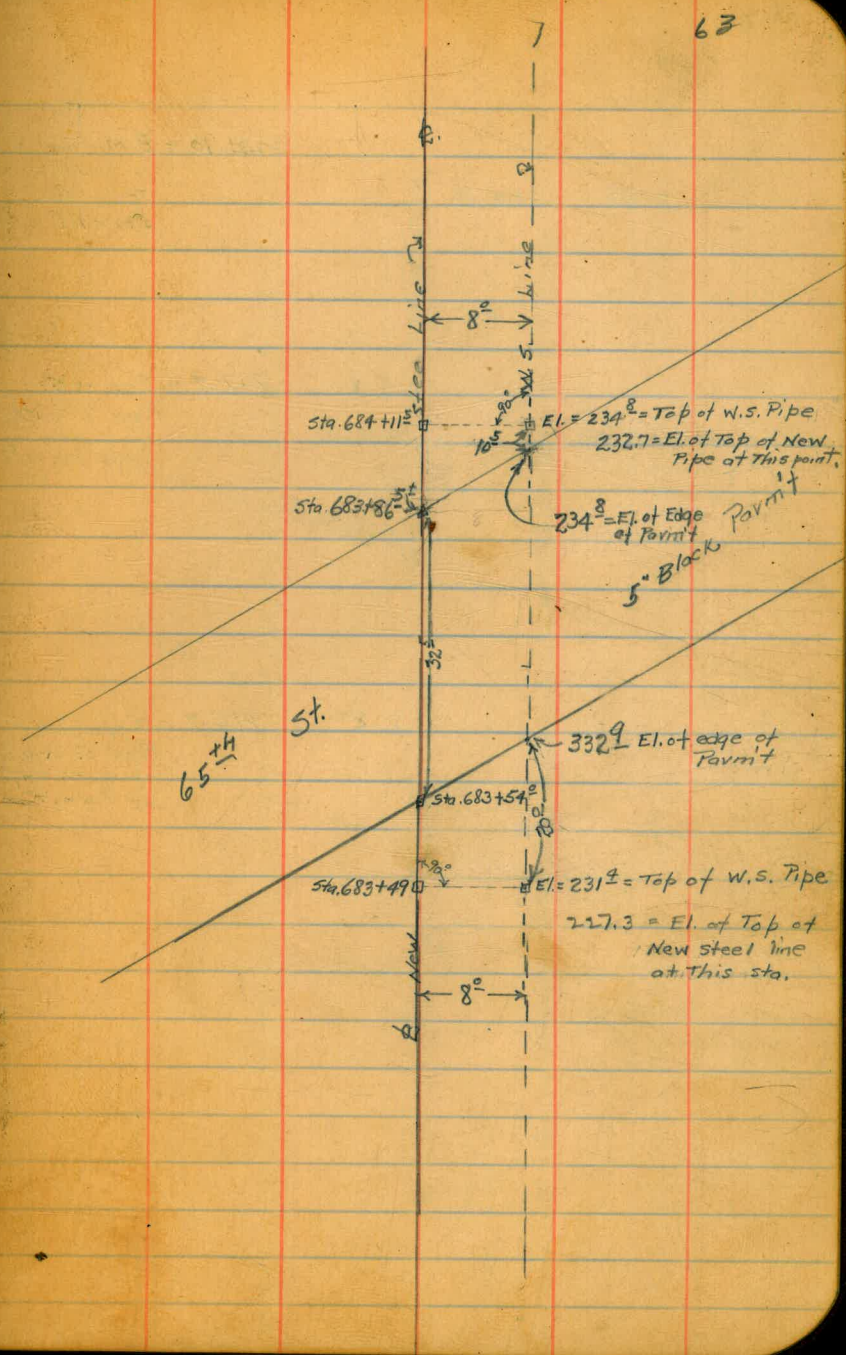 63
Steel Line
W.S. Line
8º
Sta. 684+11⁵
El. = 234⁸ = Top of W.S. Pipe
232.7 = El. of Top of New
Pipe at This point.
Sta. 683+86⁵
234⁸ = El. of Edge
of Pavm't
5" Black Pavm't
32⁵
65th St.
332⁹ El. of edge of
Pavm't
Sta. 683+54⁰
20⁰
90°
Sta. 683+49
El. = 231⁴ = Top of W.S. Pipe
227.3 = El. of Top of
New steel line
at This sta.
New
8º